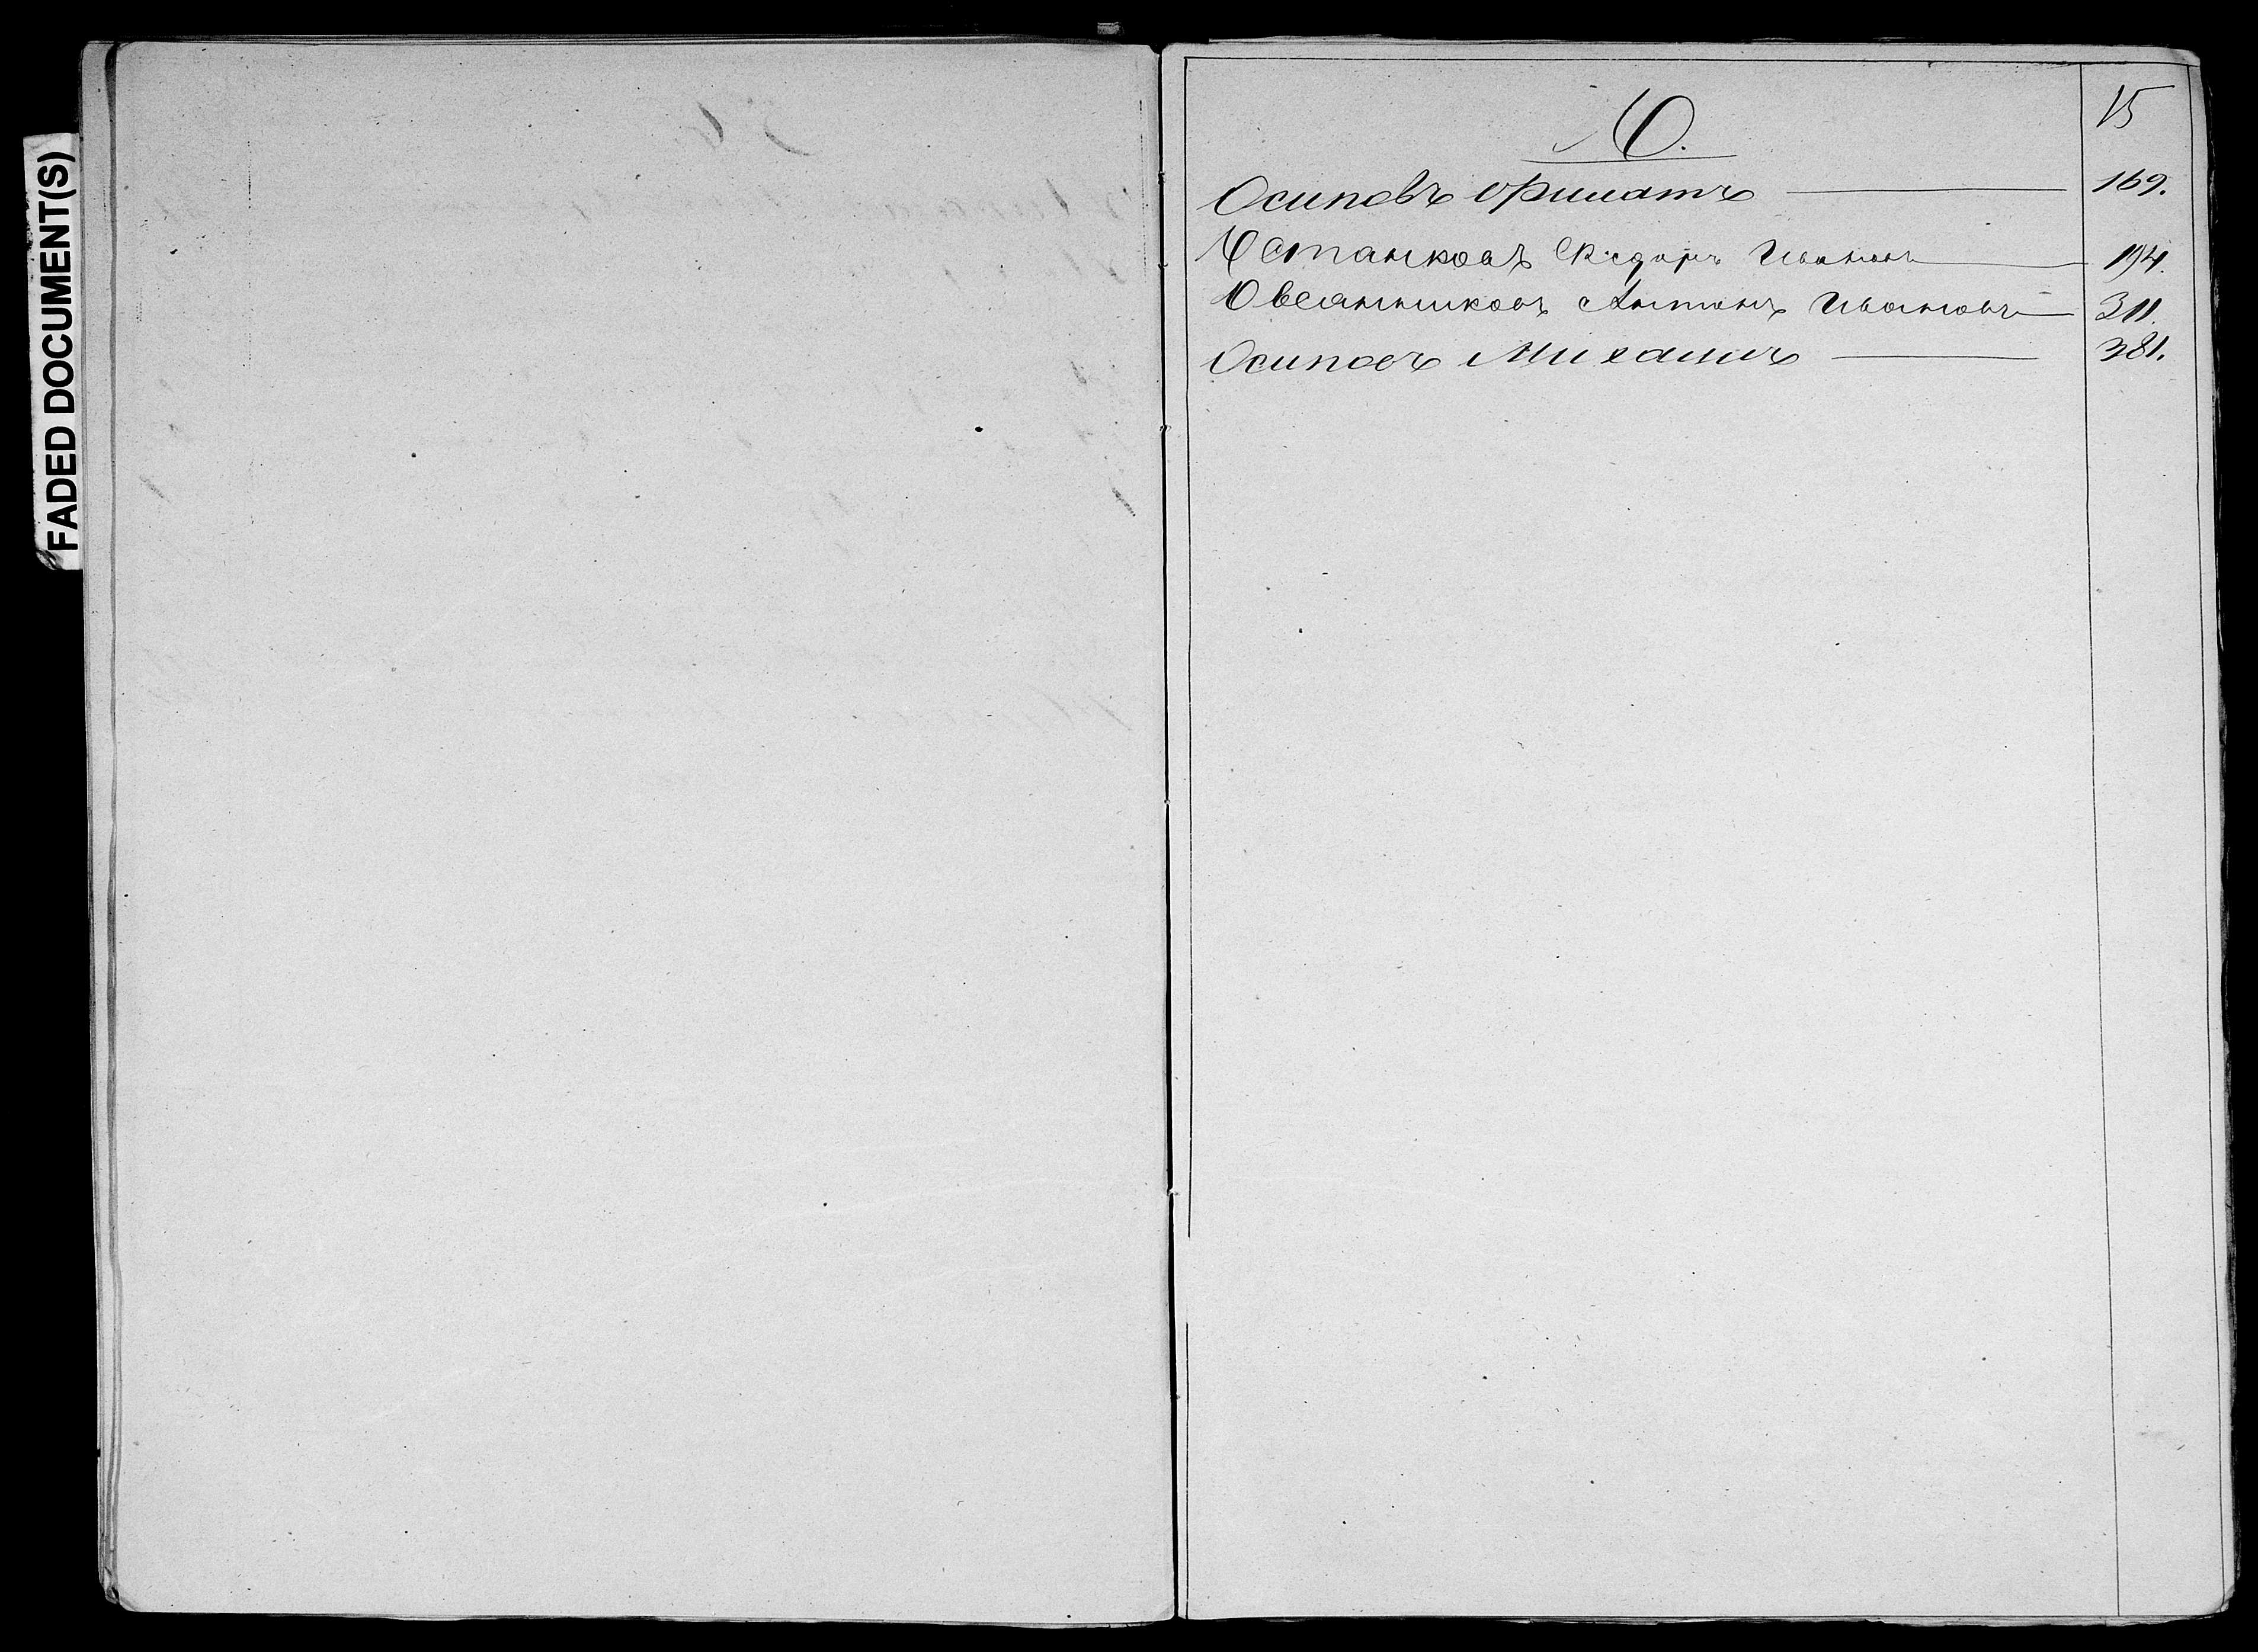 FADED DOCUMENT(S)
15
О.
Осиповъ Филатъ 169.
Останковъ Ѳедоръ Ивановъ 194.
Овсянниковъ Антонъ Ивановъ 311.
Осиповъ Михаилъ 381.